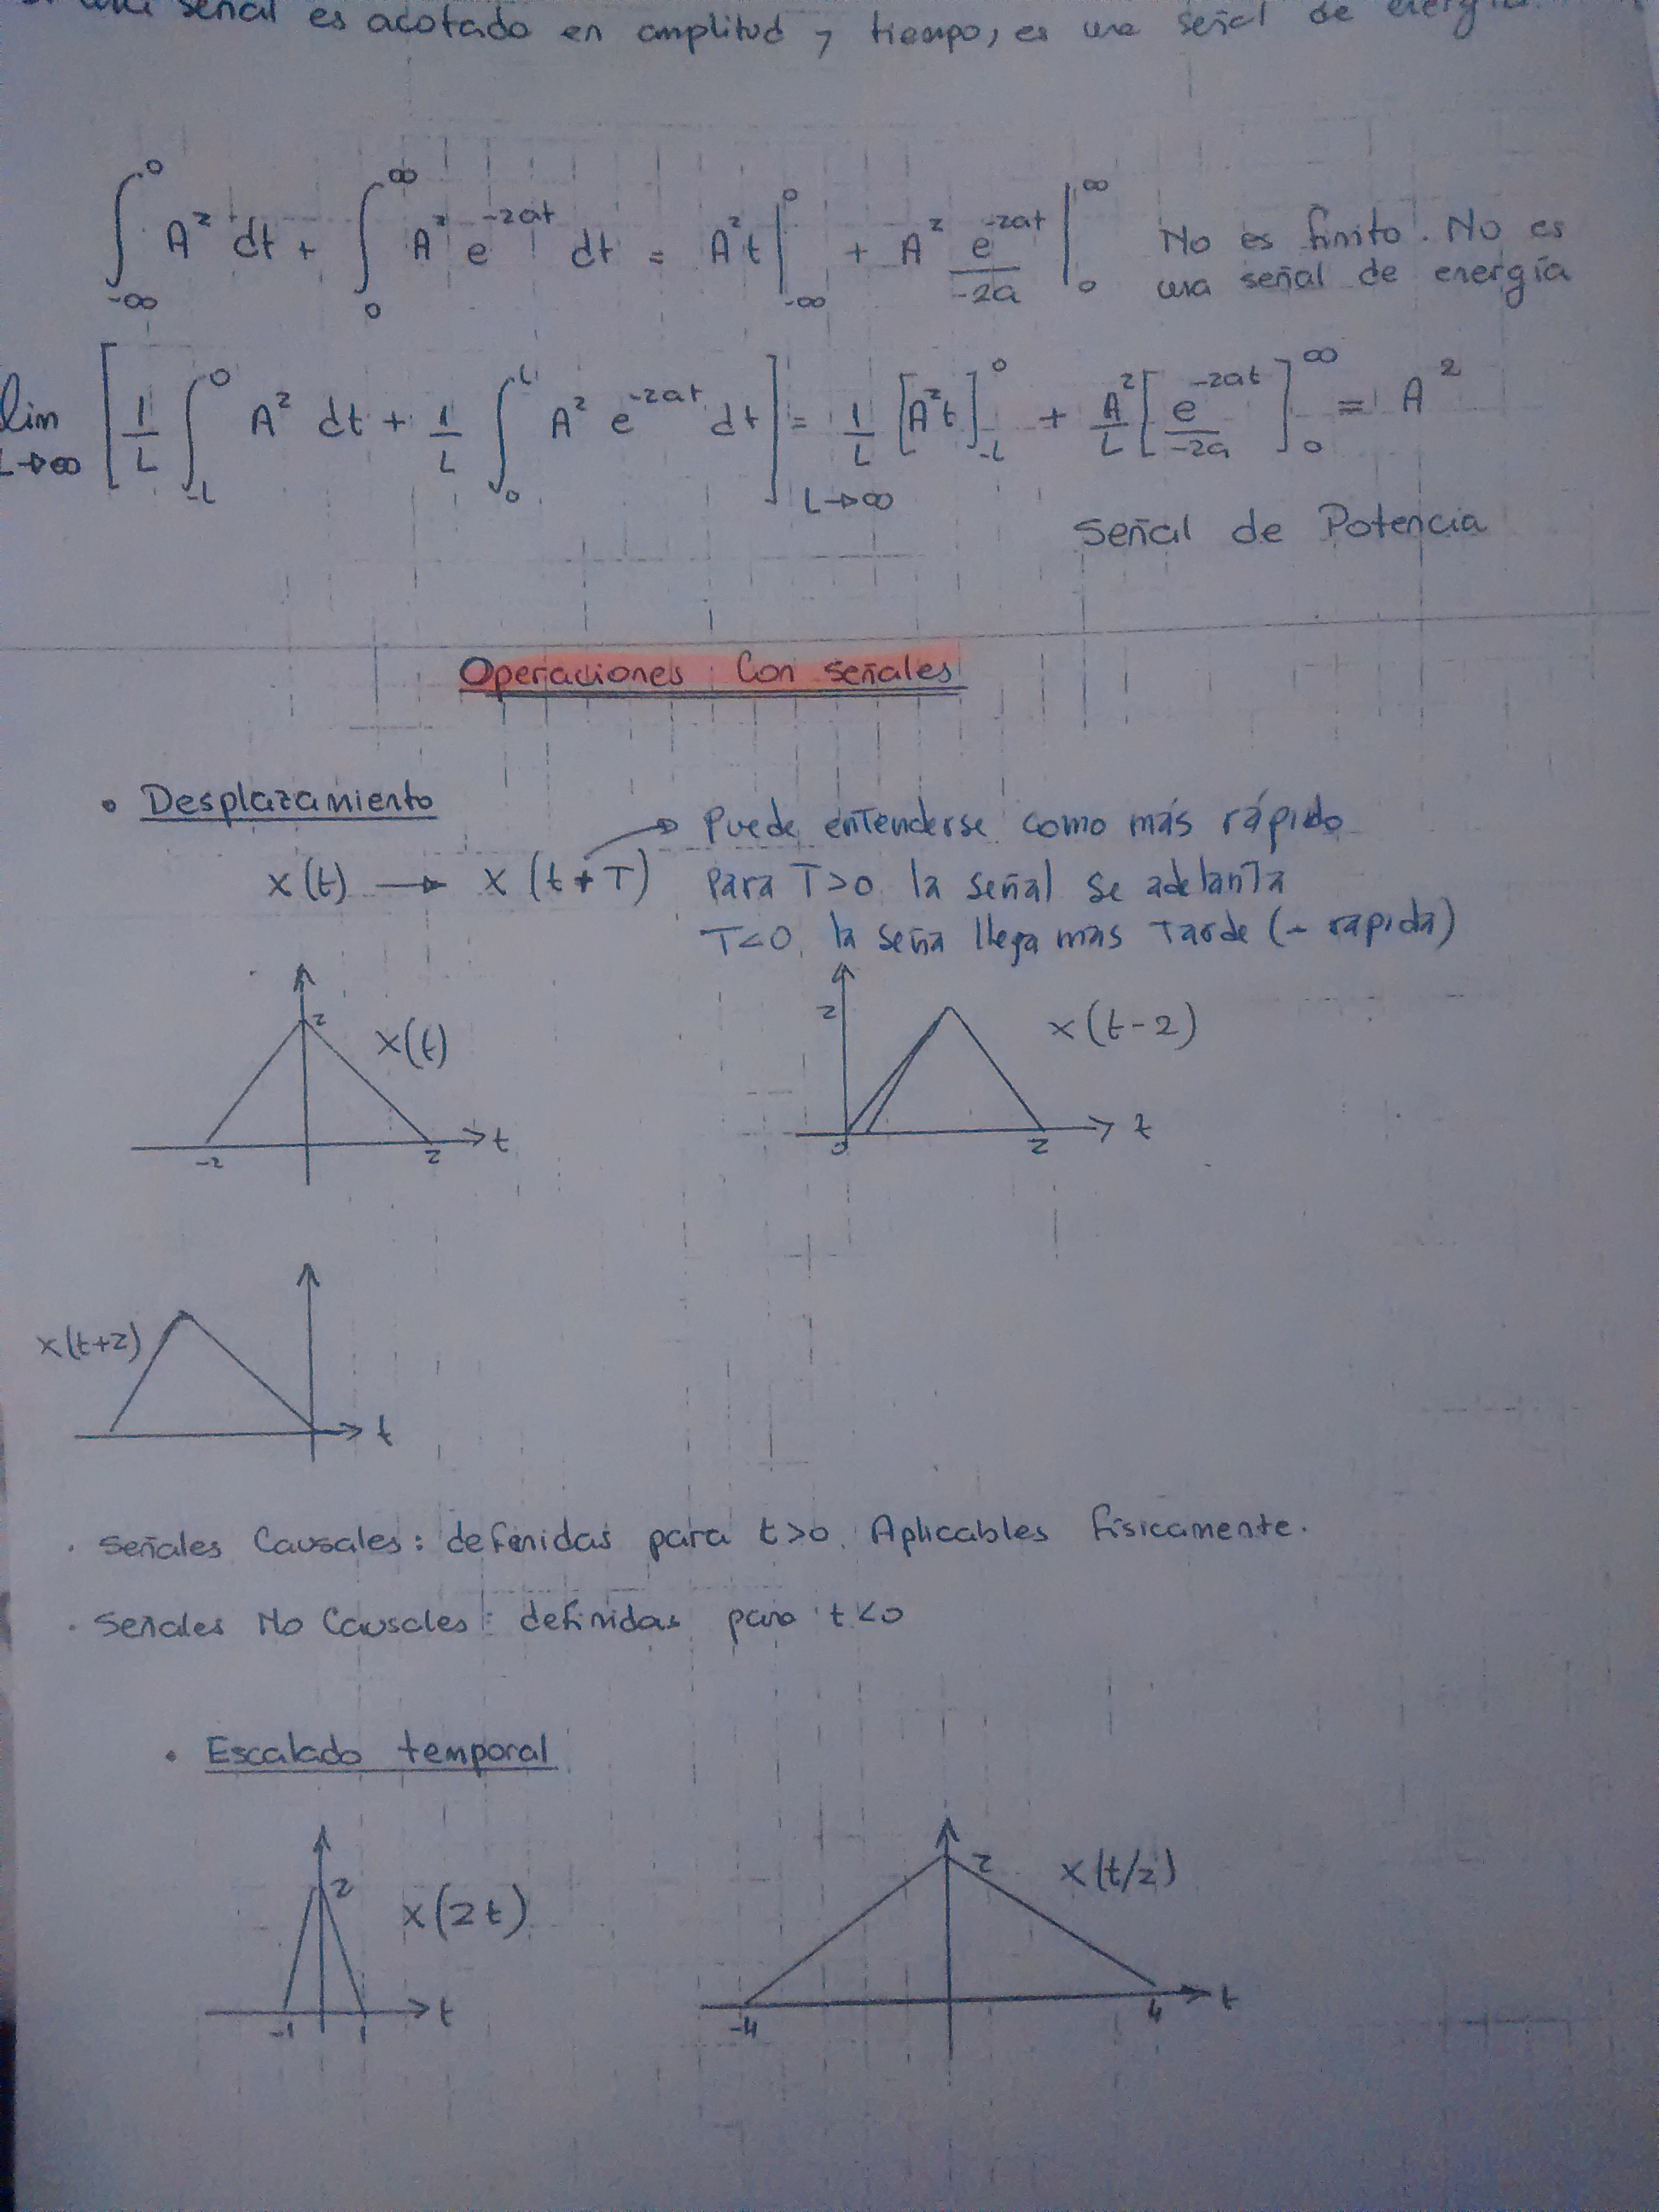 señal es acotado en amplitud y tiempo, es una señal de energía
∫_{-∞}^{0} A² dt + ∫_{0}^{∞} A² e^{-2at} dt = A²t |_{-∞}^{0} + A² e^{-2at}/-2a |_{0}^{∞} No es finito. No es
una señal de energía
lim_{L→∞} [ 1/L ∫_{-L}^{0} A² dt + 1/L ∫_{0}^{L} A² e^{-2at} dt ]_{L→∞} = 1/L [A²t]_{-L}^{0} + A²/L [e^{-2at}/-2a]_{0}^{∞} = A²
Señal de Potencia
Operaciones Con señales
• Desplazamiento
Puede entenderse como más rápido
x(t) → x(t+T) para T>0 la señal se adelanta
T<0, la seña llega mas Tarde (- rapida)
2 x(t)
-2 2 t
2 x(t-2)
0 2 t
x(t+2)
t
· Señales Causales: definidas para t>0. Aplicables físicamente.
· Señales No Causales: definidas para t<0
• Escalado temporal
2 x(2t)
-1 1 t
2 x(t/2)
-4 4 t